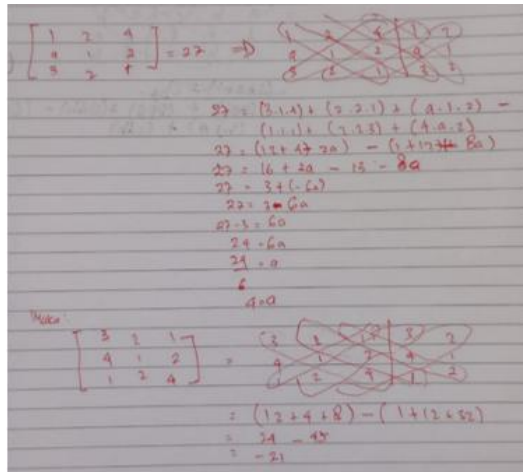 [1 2 4
a 1 2
3 2 1] = 27 ⇒ 1 2 4 | 1 2
a 1 2 | a 1
3 2 1 | 3 2
27 = (3.1.4) + (2.2.1) + (a.1.2) -
(1.1.1) + (2.2.3) + (4.a.2)
27 = (12 + 4 + 2a) - (1 + 12 + 8a)
27 = 16 + 2a - 13 - 8a
27 = 3 + (-6a)
27 = 3 - 6a
27 - 3 = 6a
24 = 6a
24 = a
6
4 = a
Maka:
[3 2 1
4 1 2
1 2 4] = 3 2 1 | 3 2
4 1 2 | 4 1
1 2 4 | 1 2
= (12 + 4 + 8) - (1 + 12 + 32)
= 24 - 45
= -21